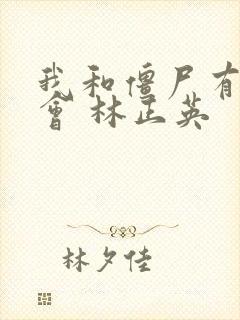 我和僵尸有
會 林正英
林夕佳